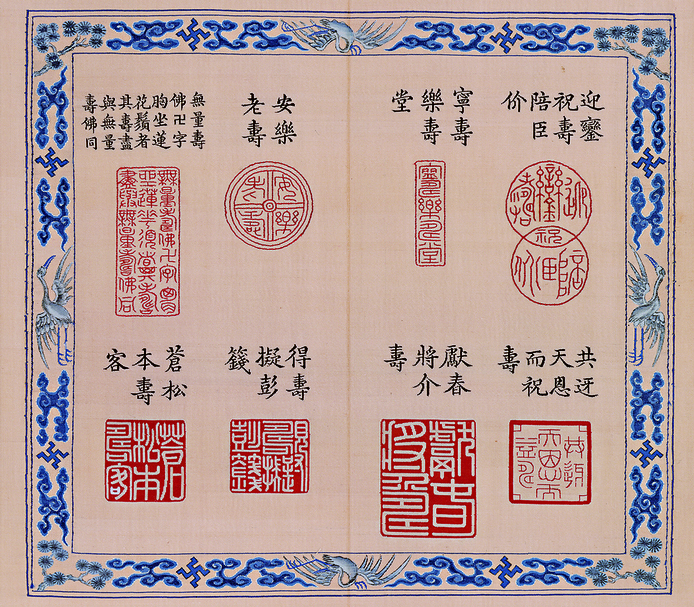 迎鑾
祝壽
陪臣
价
寧壽
樂壽
堂
安樂
老壽
無量壽
佛卍字
胸坐蓮
花鬚者
其壽盡
與無量
壽佛同
共迓
天恩
而祝
壽
獻春
將介
壽
得壽
擬彭
籛
蒼松
本壽
客